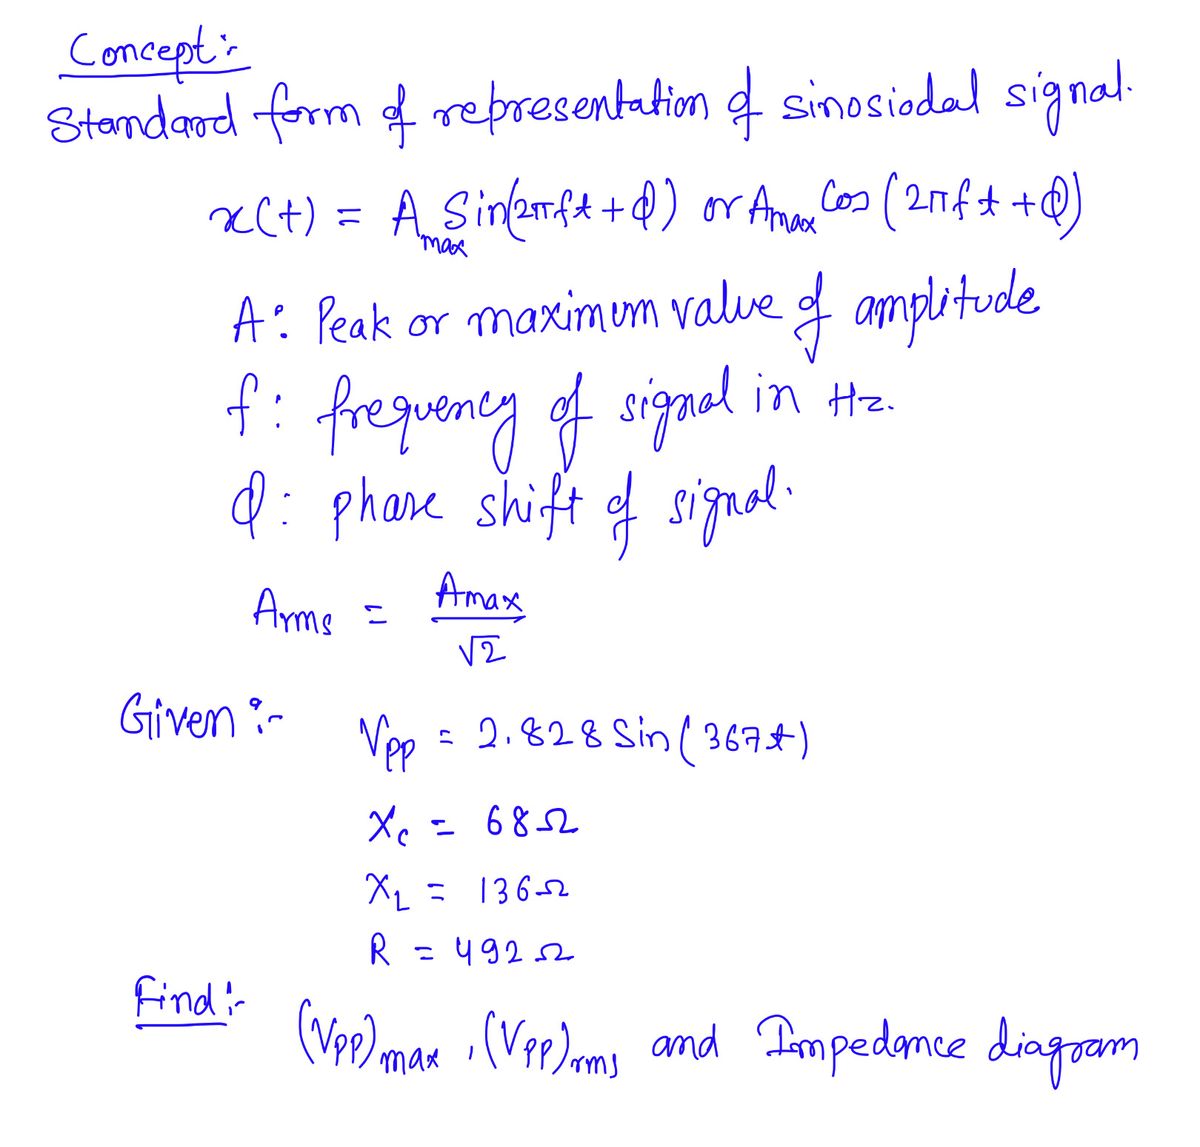 Concept :-
Standard form of representation of sinosiodal signal.
x(t) = A_max Sin(2πft + φ) or A_max Cos (2πft + φ)
A : Peak or maximum value of amplitude
f : frequency of signal in Hz.
φ : phase shift of signal.
Arms = Amax / √2
Given :-
Vpp = 2.828 Sin(367t)
Xc = 68Ω
XL = 136Ω
R = 492Ω
Find :-
(Vpp)max , (Vpp)rms and Impedance diagram